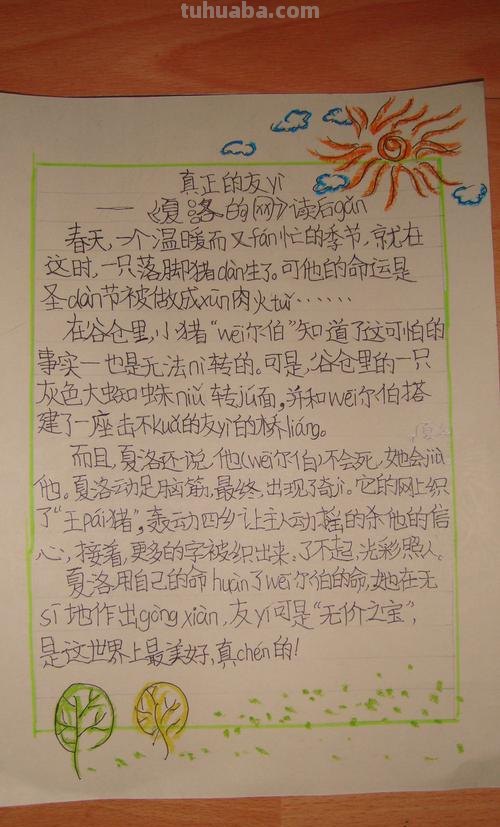 tuhuaba.com
真正的友yì
——《夏洛的网》读后gǎn
春天,一个温暖而又fán忙的季节,就在
这时,一只落脚猪dàn生了。可他的命运是
圣dàn节被做成xūn肉火tuǐ……
在谷仓里,小猪“wēi尔伯”知道了这可怕的
事实一也是无法nì转的。可是,谷仓里的一只
灰色大蜘蛛niǔ转jú面,并和wēi尔伯搭
建了一座击不kuǎ的友yì的桥liáng。
而且,夏洛还说,他(wēi尔伯)不会死,她会jiù
他。夏洛动足脑筋,最终,出现了奇jì。它的网上织
了“王pái猪”,轰动四乡让主人动摇的杀他的信
心,接着,更多的字被织出来、了不起、光彩照人。
夏洛用自己的命huàn了wēi尔伯的命,她在无
sī地作出gòng xiàn,友yì可是“无价之宝”,
是这世界上最美好,真chén的!